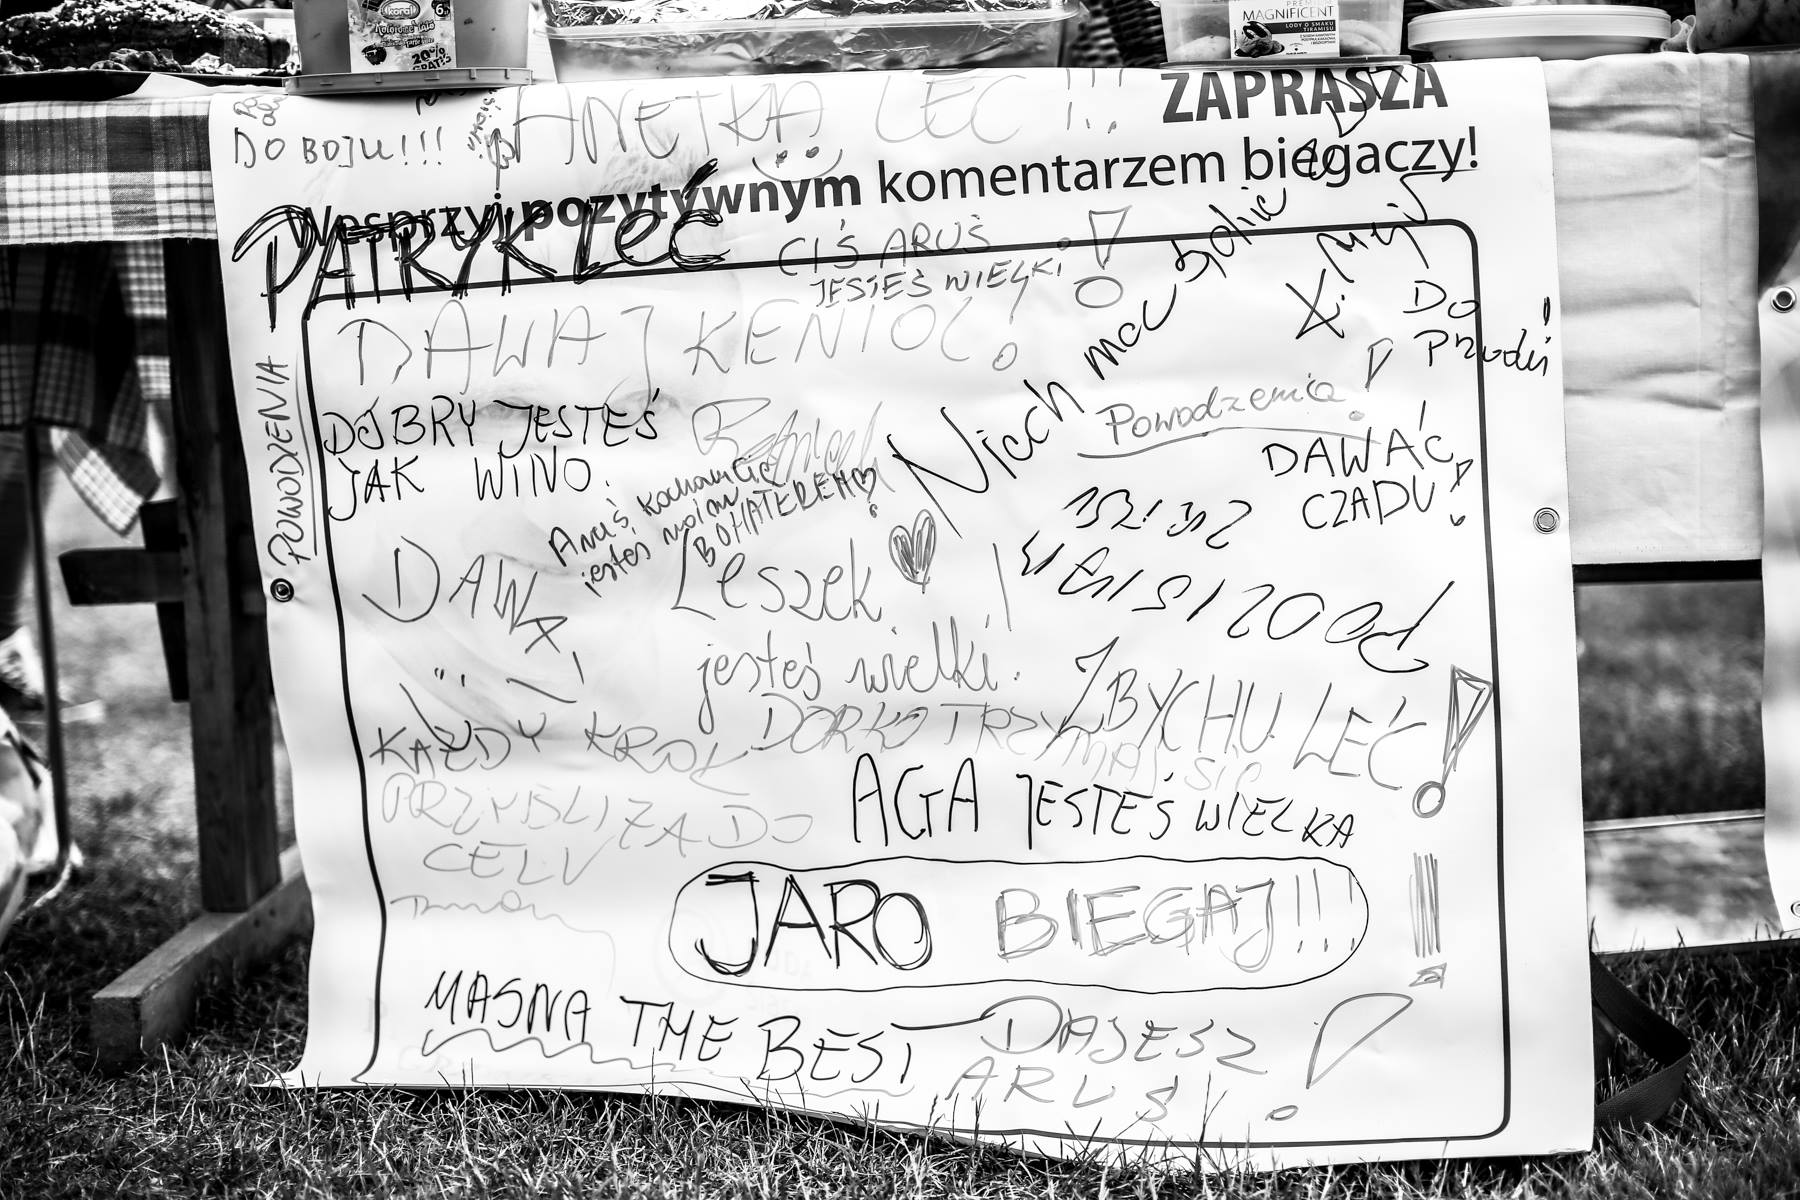 Koral
Kolorowe lato
20%
GRATIS
MAGNIFICENT
LODY O SMAKU
TIRAMISU
ANETKA LEĆ!!!
ZAPRASZA
DO BOJU!!!
Wesprzyj pozytywnym komentarzem biegaczy!
PATRYK LEĆ
CIŚ ARUŚ
JESTEŚ WIELKI!
DAWAJ KENIOL!
Niech moc będzie z
Do
Przodu!
POWODZENIA
Powodzenia!
DOBRY JESTEŚ
JAK WINO.
DAWAĆ
CZADU!
Aruś kochamy Cię
jesteś moim
BOHATEREM
DAWAJ
Leszek
jesteś wielki.
ZBYCHU LEĆ!
KAŻDY KROK
PRZYBLIŻA DO
CELU
DORKA TRZYMAJ SIĘ
AGA JESTEŚ WIELKA
JARO BIEGAJ!!!
MASNA THE BEST
DAJESZ
ARUŚ!